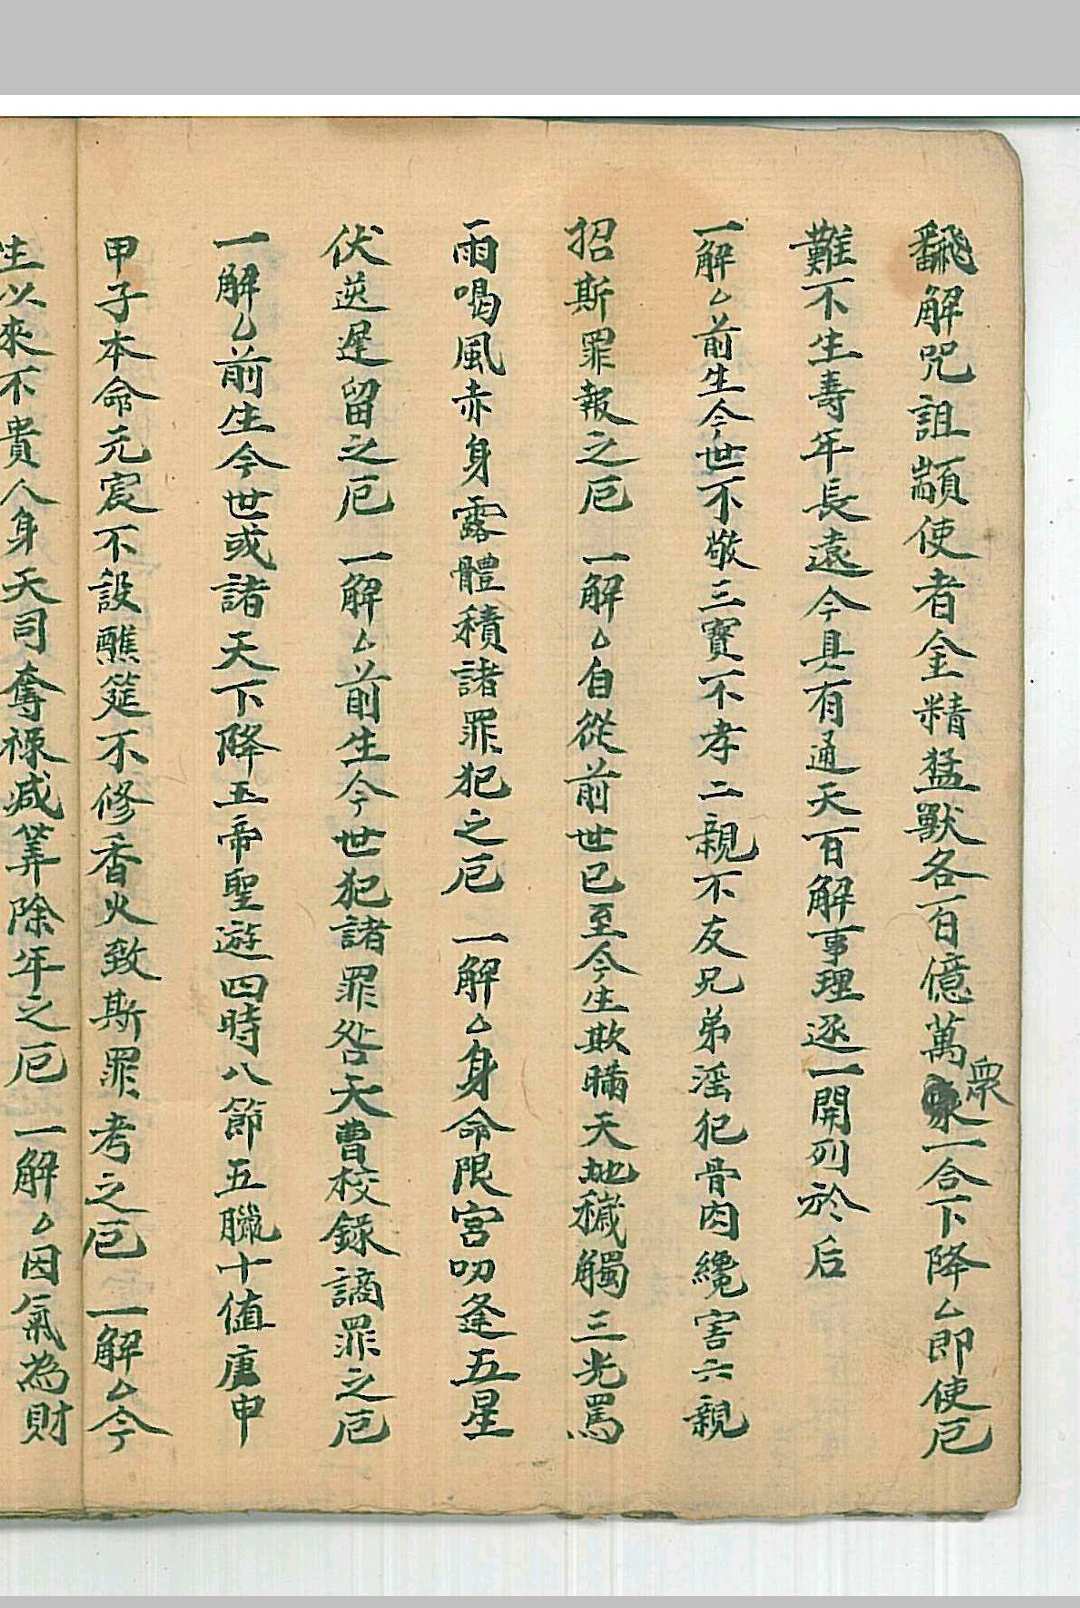 飜解咒詛顓使者金精猛獸各百億萬眾一合下降厶即使厄
難不生壽年長遠今具有通天百解事理逐一開列於后
一解厶前生今世不敬三寳不孝二親不友兄弟滛犯骨肉纔害六親
招斯罪報之厄 一解厶自從前世已至今生欺瞞天地穢觸三光罵
雨喝風赤身露體積諸罪犯之厄 一解厶身命限宮叨逢五星
伏逆遲留之厄 一解厶前生今世犯諸罪咎天曹校録謫罪之厄
一解厶前生今世或諸天下降玉帝聖遊四時八節五臘十值庚申
甲子本命元宸不設醮筵不修香火致斯罪考之厄 一解厶今
生以來不貴人身天司奪祿减筭除年之厄 一解厶因氣為財